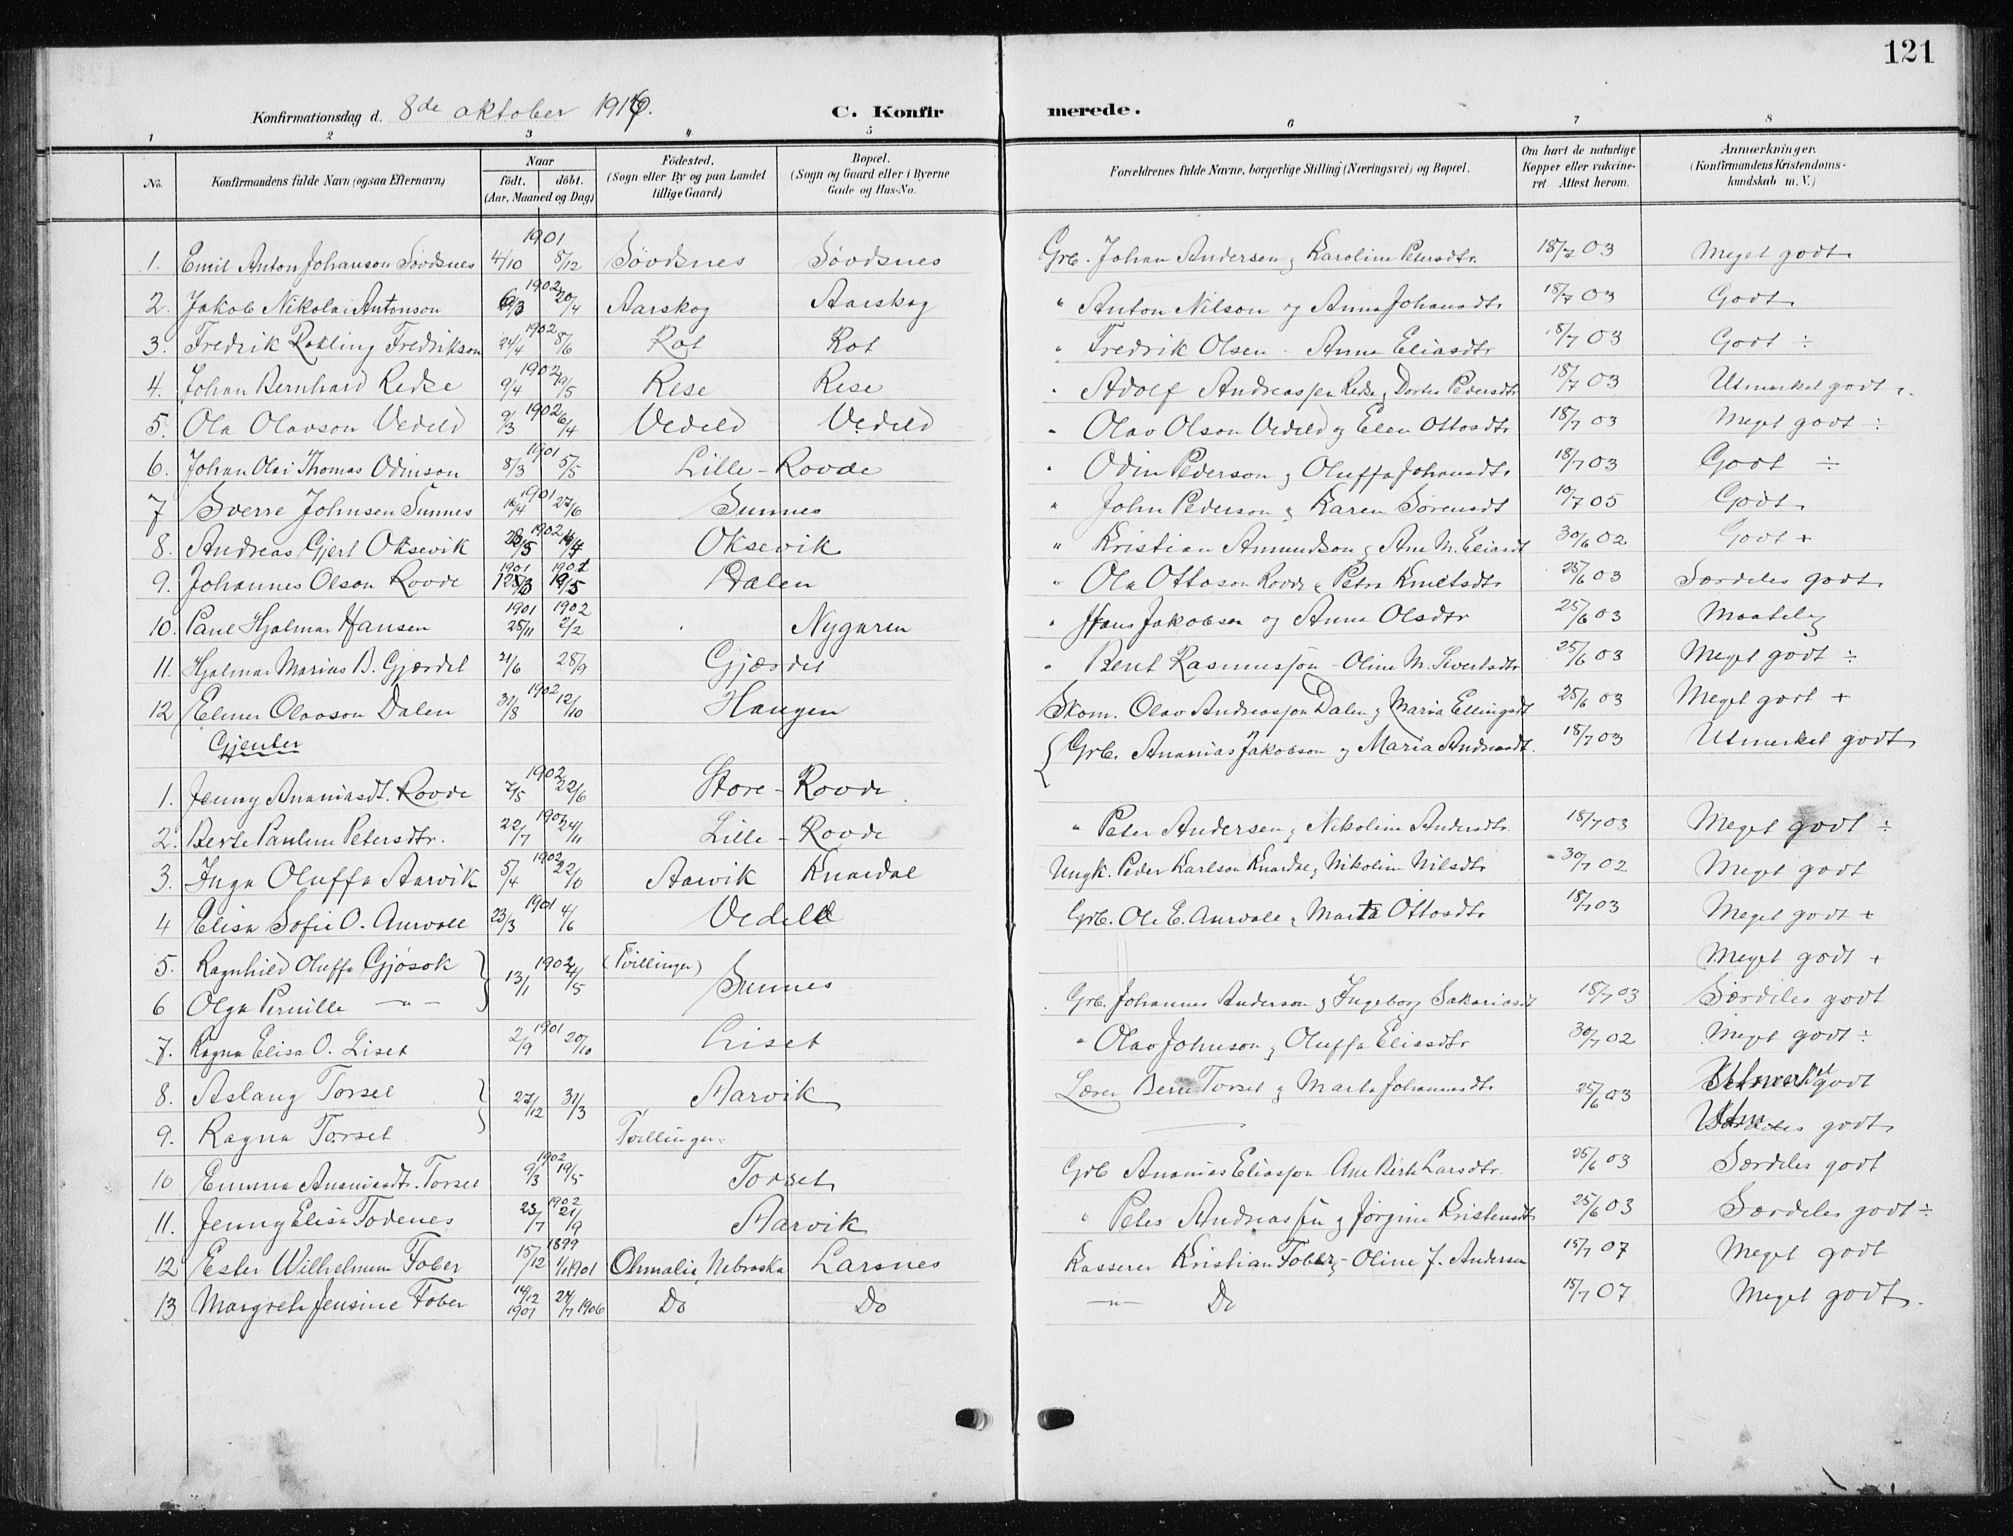 121
Konfirmationsdag d. 8de oktober 1916. C. Konfirmerede.
1 2 3 4 5 6 7 8
No. Konfirmandens fulde Navn (ogsaa Efternavn) Naar født. døbt. (Aar, Maaned og Dag) Fødested. (Sogn eller By og paa Landet tillige Gaard) Bopæl. (Sogn og Gaard eller i Byerne Gade og Hus-No. Forældrenes fulde Navne, borgerlige Stilling (Næringsvei) og Bopæl. Om havt de naturlige Kopper eller vakcineret. Attest herom. Anmærkninger. (Konfirmandens Kristendomskundskab m. V.)
1. Emil Anton Johanson Sövdsnes 1901 4/10 8/12 Sövdsnes Sövdsnes Grb. Johan Andersen & Karoline Petersdtr. 18/7 03 Meget godt
2. Jakob Nikolai Antonson 1902 20/4 Aarskog Aarskog " Anton Nilson og Anna Johansdtr 18/7 03 Godt
3. Fredrik Fredrikson 1902 24/4 8/6 Rot Rot " Fredrik Olsen - Anna Eliasdtr 18/7 03 Godt ÷
4. Johan Bernhard Redse 1902 9/4 19/5 Rese Rese " Adolf Andreassen Redse & Dortea Pedersdtr 18/7 03 Utmerket godt
5. Ola Olavson Vedeld 1902 9/3 6/4 Vedeld Vedeld " Olav Olson Vedeld og Elen Ottosdtr 18/7 03 Meget godt ÷
6. Johan Olai Thomas Odinson 1901 8/3 5/5 Lille-Rovde " Odin Pederson & Oluffa Johansdtr 18/7 03 Godt ÷
7 Sverre Johnsen Sunnes 1901 16/4 27/6 Sunnes " John Pederson & Karen Sörensdt 10/7 05 Godt
8. Andreas Gjert Oksevik 1902 Oksevik " Kristian Amundson & Ane M. Eliasdt 30/6 02 Godt +
9. Johannes Olson Rovde 1901 1902 19/5 Dalen " Ola Ottoson Rovde & Petra Knutsdtr 25/6 03 Særdeles godt
10. Paul Hjalmar Hansen 1901 25/11 1902 2/2 Nygaren " Hans Jakobsen og Anna Olsdtr 25/6 03 Maatelig
11. Hjalmar Marius B. Gjærdet 21/6 28/9 Gjærdet " Bent Rasmusson - Oline M. Sivertsdtr 25/6 03 Meget godt ÷
12 Elmer Olavson Dalen 1902 31/8 12/10 Haugen Skom. Olav Andreasson Dalen & Maria Ellingsdt 25/6 03 Meget godt +
Gjenter
1. Jenny Ananiasdt. Rovde 1902 7/5 22/6 Store-Rovde Grb. Ananias Jakobson og Maria Andreasdt. 18/7 03 Utmerket godt
2. Berte Pauline Petersdtr. 22/7 24/11 Lille-Rovde " Peter Andersen & Nikoline Andersdtr. 18/7 03 Meget godt ÷
3. Inga Oluffa Aarvik 1902 5/4 22/6 Aarvik Knardal Ungk. Peder Karlson Knardal & Nikoline Nilsdtr 30/7 02 Meget godt
4 Elisa Sofie O. Aurvoll 1901 23/3 4/6 Vedeld Grb. Ole E. Aurvoll & Marta Ottosdtr 18/7 03 Meget godt +
5. Ragnhild Oluffa Gjösok 1902 13/1 4/5 (Tvillinger) Sunnes Meget godt +
6 Olga Pernille -"- Grb. Johannes Anderson & Ingeborg Sakariasdt 18/7 03 Særdeles godt
7. Ragna Elisa O. Liset 1901 2/9 20/10 Liset " Olav Johnson & Oluffa Eliasdtr 30/7 02 Meget godt ÷
8. Aslaug Torset 27/12 31/3 Aarvik Lærer Bernt Torset & Marta Johannesdtr 25/6 03 Utmerket godt
9. Ragna Torset Tvillinger Utm. godt
10 Emma Ananiasdtr. Torset 1902 9/3 19/5 Torset Grb Ananias Eliasson - Ane Berte Larsdtr. 25/6 03 Særdeles godt
11. Jenny Elisa Todenes 1902 23/7 21/9 Aarvik " Peter Andreassen & Jørgine Kristensdt 25/6 03 Særdeles godt ÷
12 Ester Wilhelmine Fober 15/12 1899 1901 Ohmalia, Nebraska Larsnes Kasserer Kristian Fober - Oline J. Andersen 15/7 07 Meget godt
13 Margrete Jensine Fober 14/12 1901 24/7 1906 Do Do -"- Do 15/7 07 Meget godt.